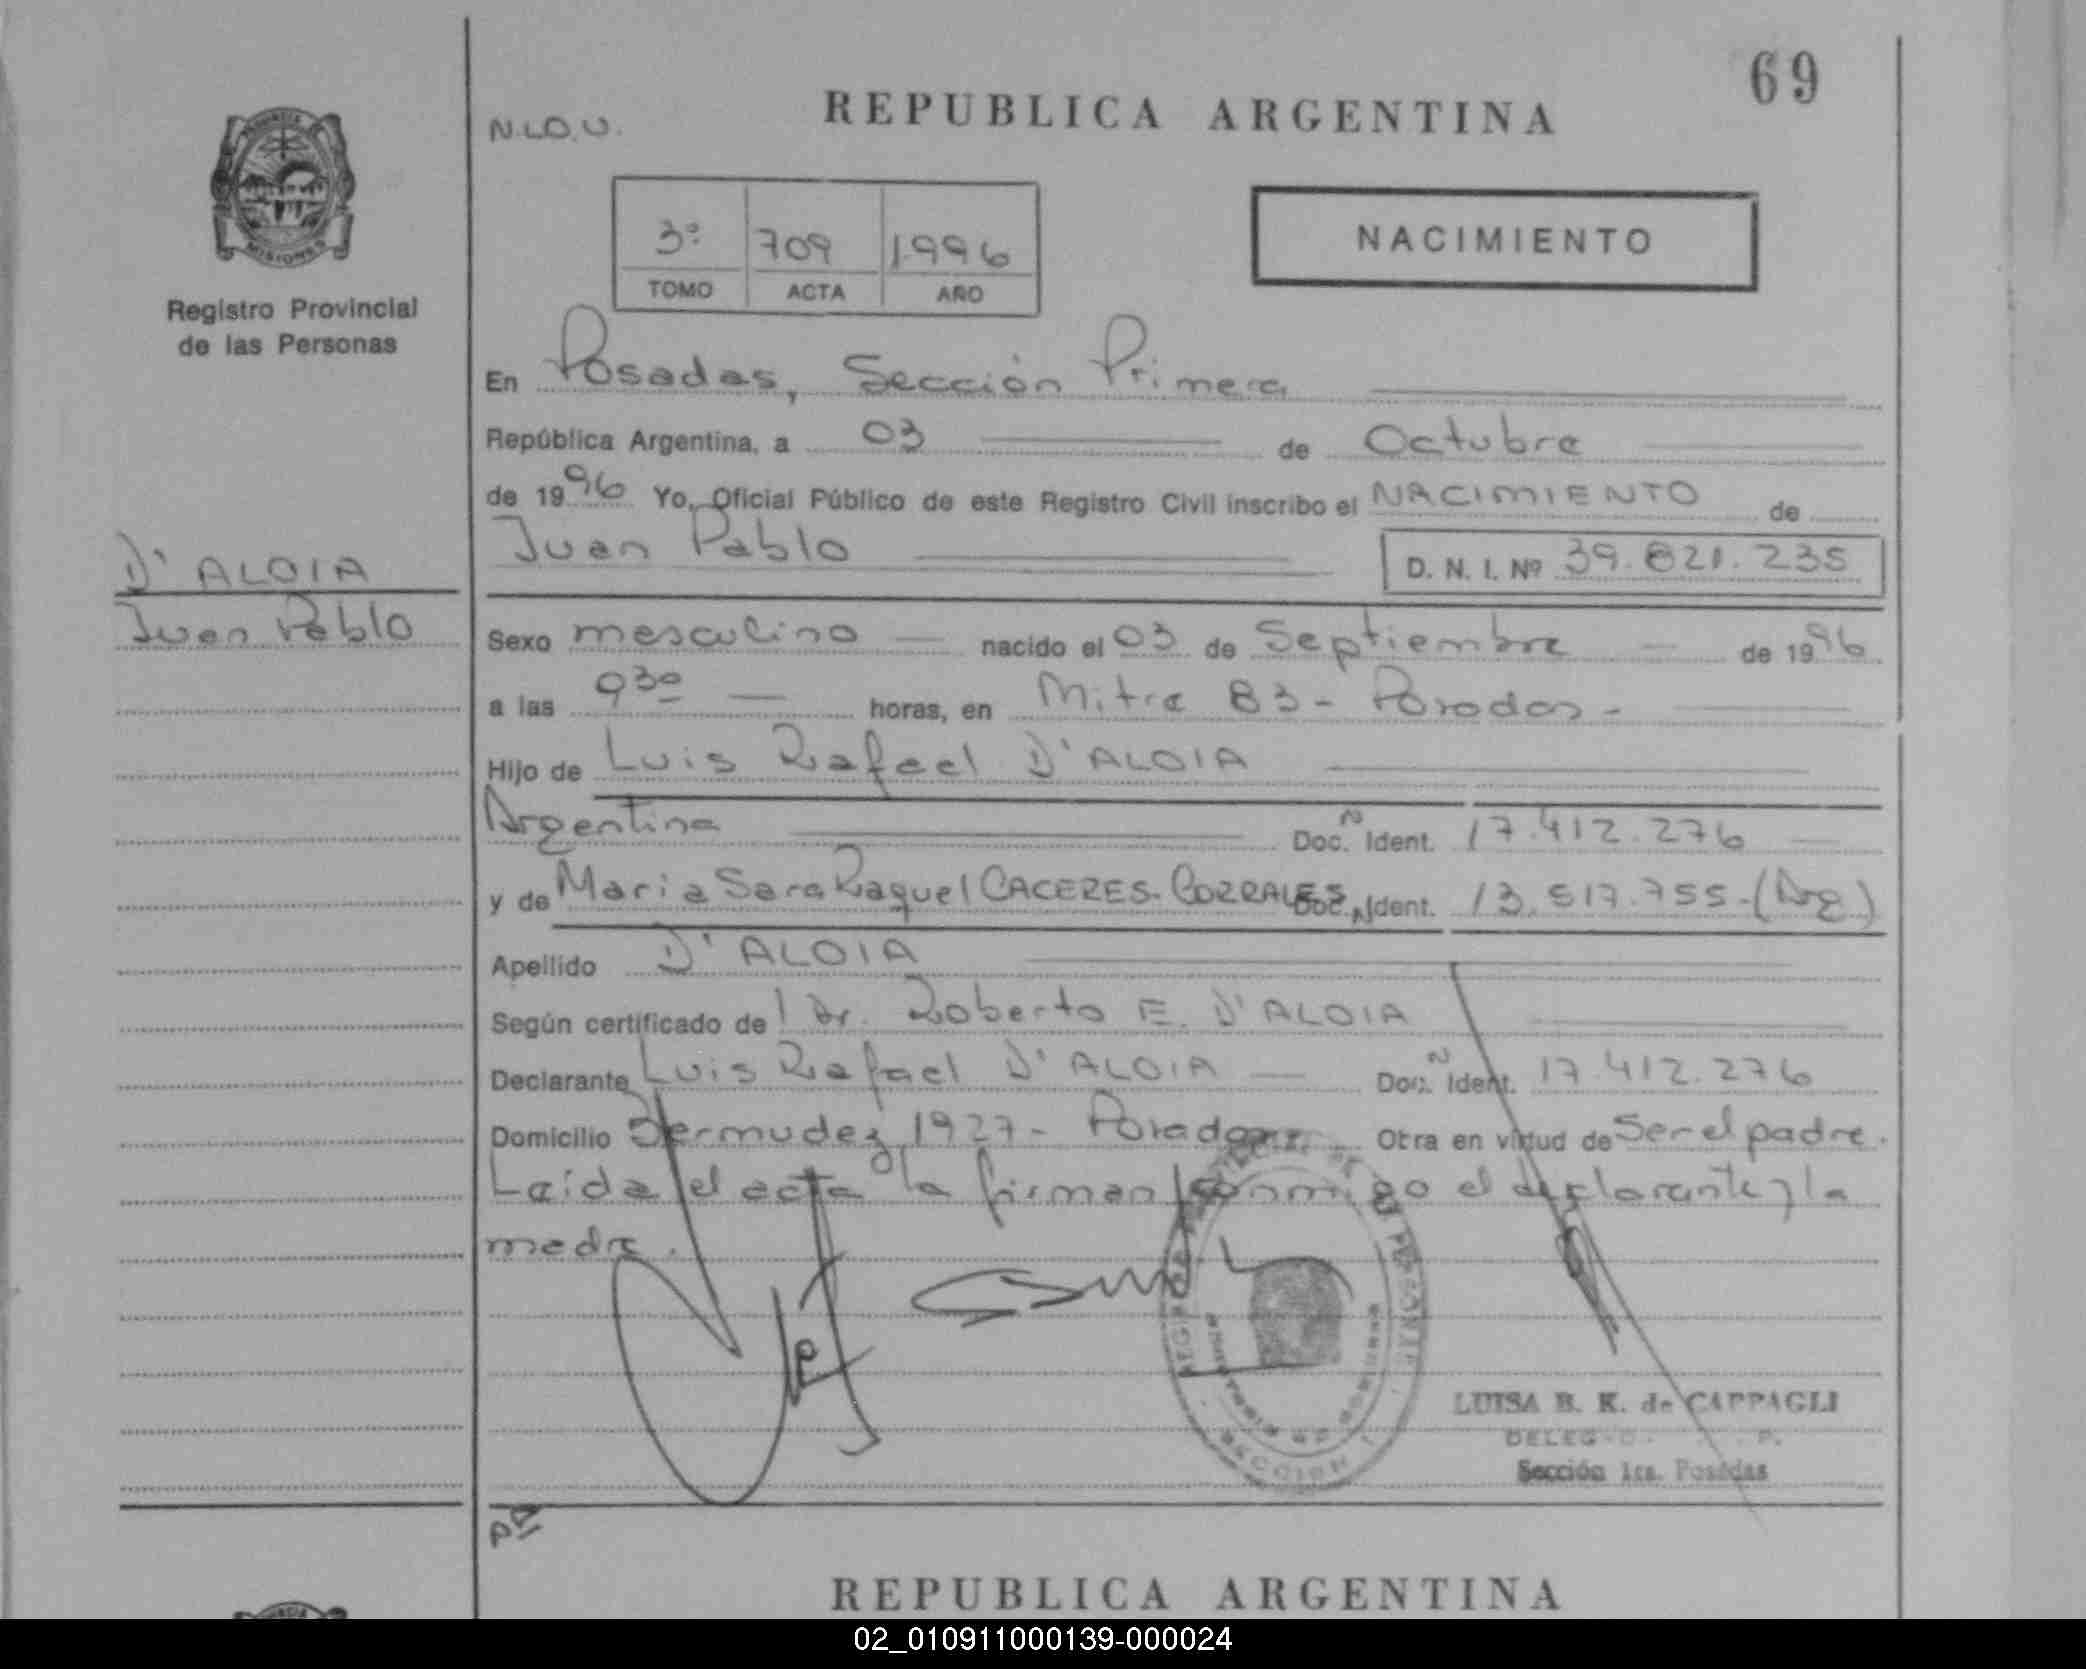 69
REPUBLICA ARGENTINA
N.LO.U.
PROVINCIA DE
MISIONES
Registro Provincial
de las Personas
3º 709 1.996
TOMO ACTA AÑO
NACIMIENTO
En Posadas, Sección Primera
República Argentina, a 03 de Octubre
de 1996 Yo, Oficial Público de este Registro Civil inscribo el NACIMIENTO de
Juan Pablo D. N. I. Nº 39.821.235
D' ALOIA
Juan Pablo
Sexo masculino nacido el 03 de Septiembre de 1996
a las 930 horas, en Mitre 83 - Posadas -
Hijo de Luis Rafael D'ALOIA
Argentina Doc. N Ident. 17.412.276
y de Maria Sara Raquel CACERES - CORRALES Doc. N Ident. 13.517.755-(Arg)
Apellido D' ALOIA
Según certificado del Dr. Roberto E. D'ALOIA
Declarante Luis Rafael D' ALOIA Doc. N Ident. 17.412.276
Domicilio Bermudez 1927- Posadas Otra en virtud de Ser el padre.
Leída el acta la firman conmigo el declarante y la
madre.
LUISA B. K. de CAPPAGLI
Sección 1ra. Posadas
REPUBLICA ARGENTINA
02_010911000139-000024